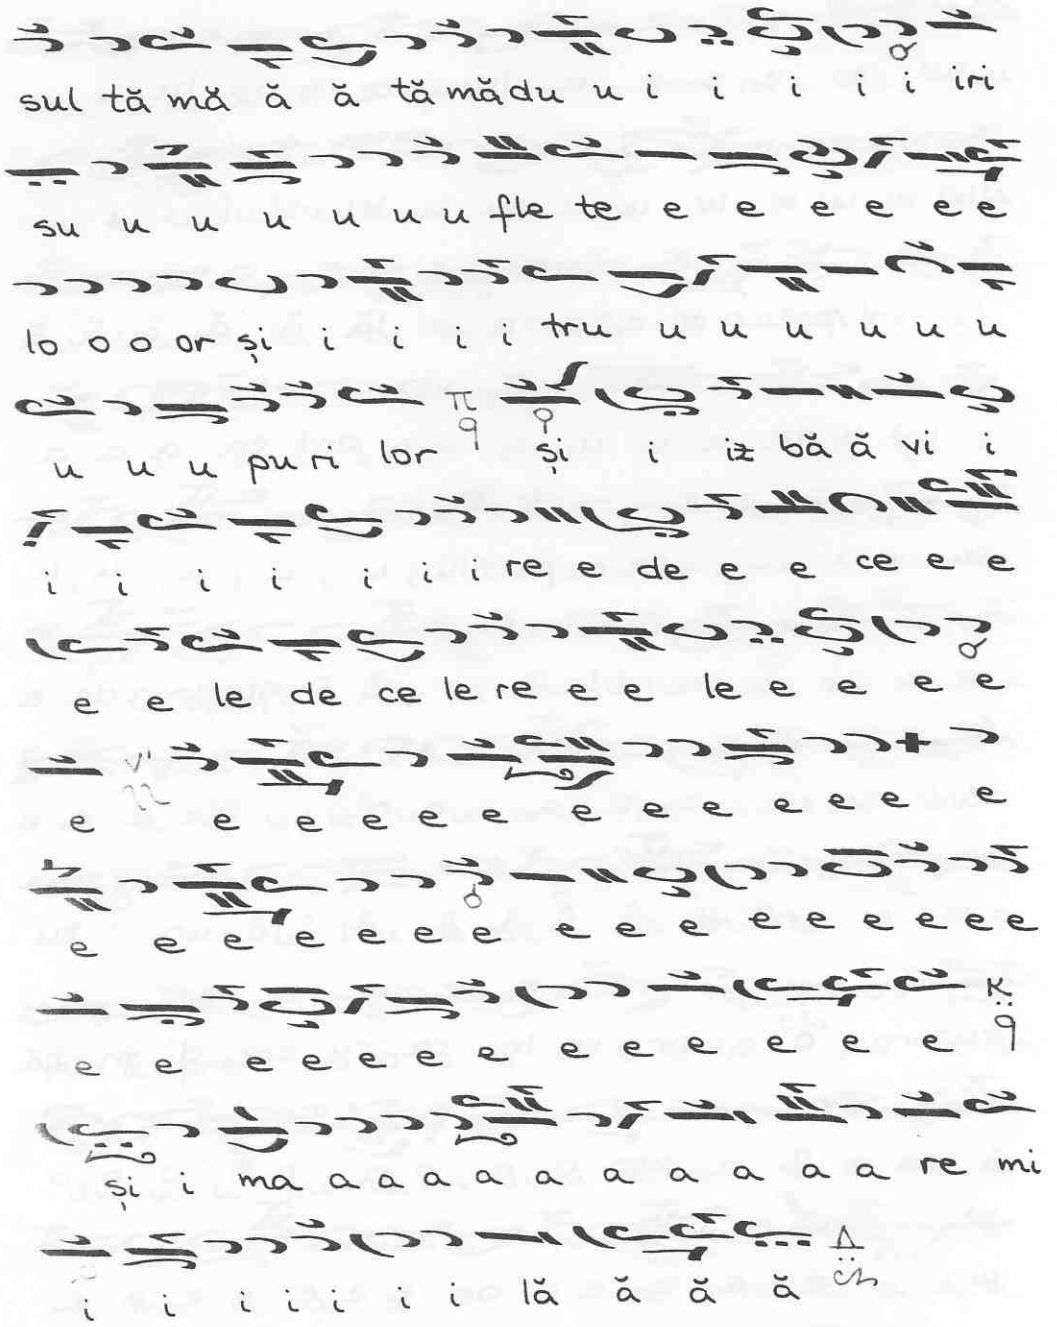 sul tă mă ă ă tă mă du u i i i i i iri
su u u u u u u fle te e e e e e e
lo o o or și i i i i tru u u u u u u
u u u pu ri lor și i iz bă ă vi i
i i i i i i i re e de e e ce e e
e e le de ce le re e e le e e e e
e e e e e e e e e e e e e
e e e e e e e e e e e e e e e
e e e e e e e e e e e e e
și i ma a a a a a a a a a re mi
i i i i i i i lă ă ă ă